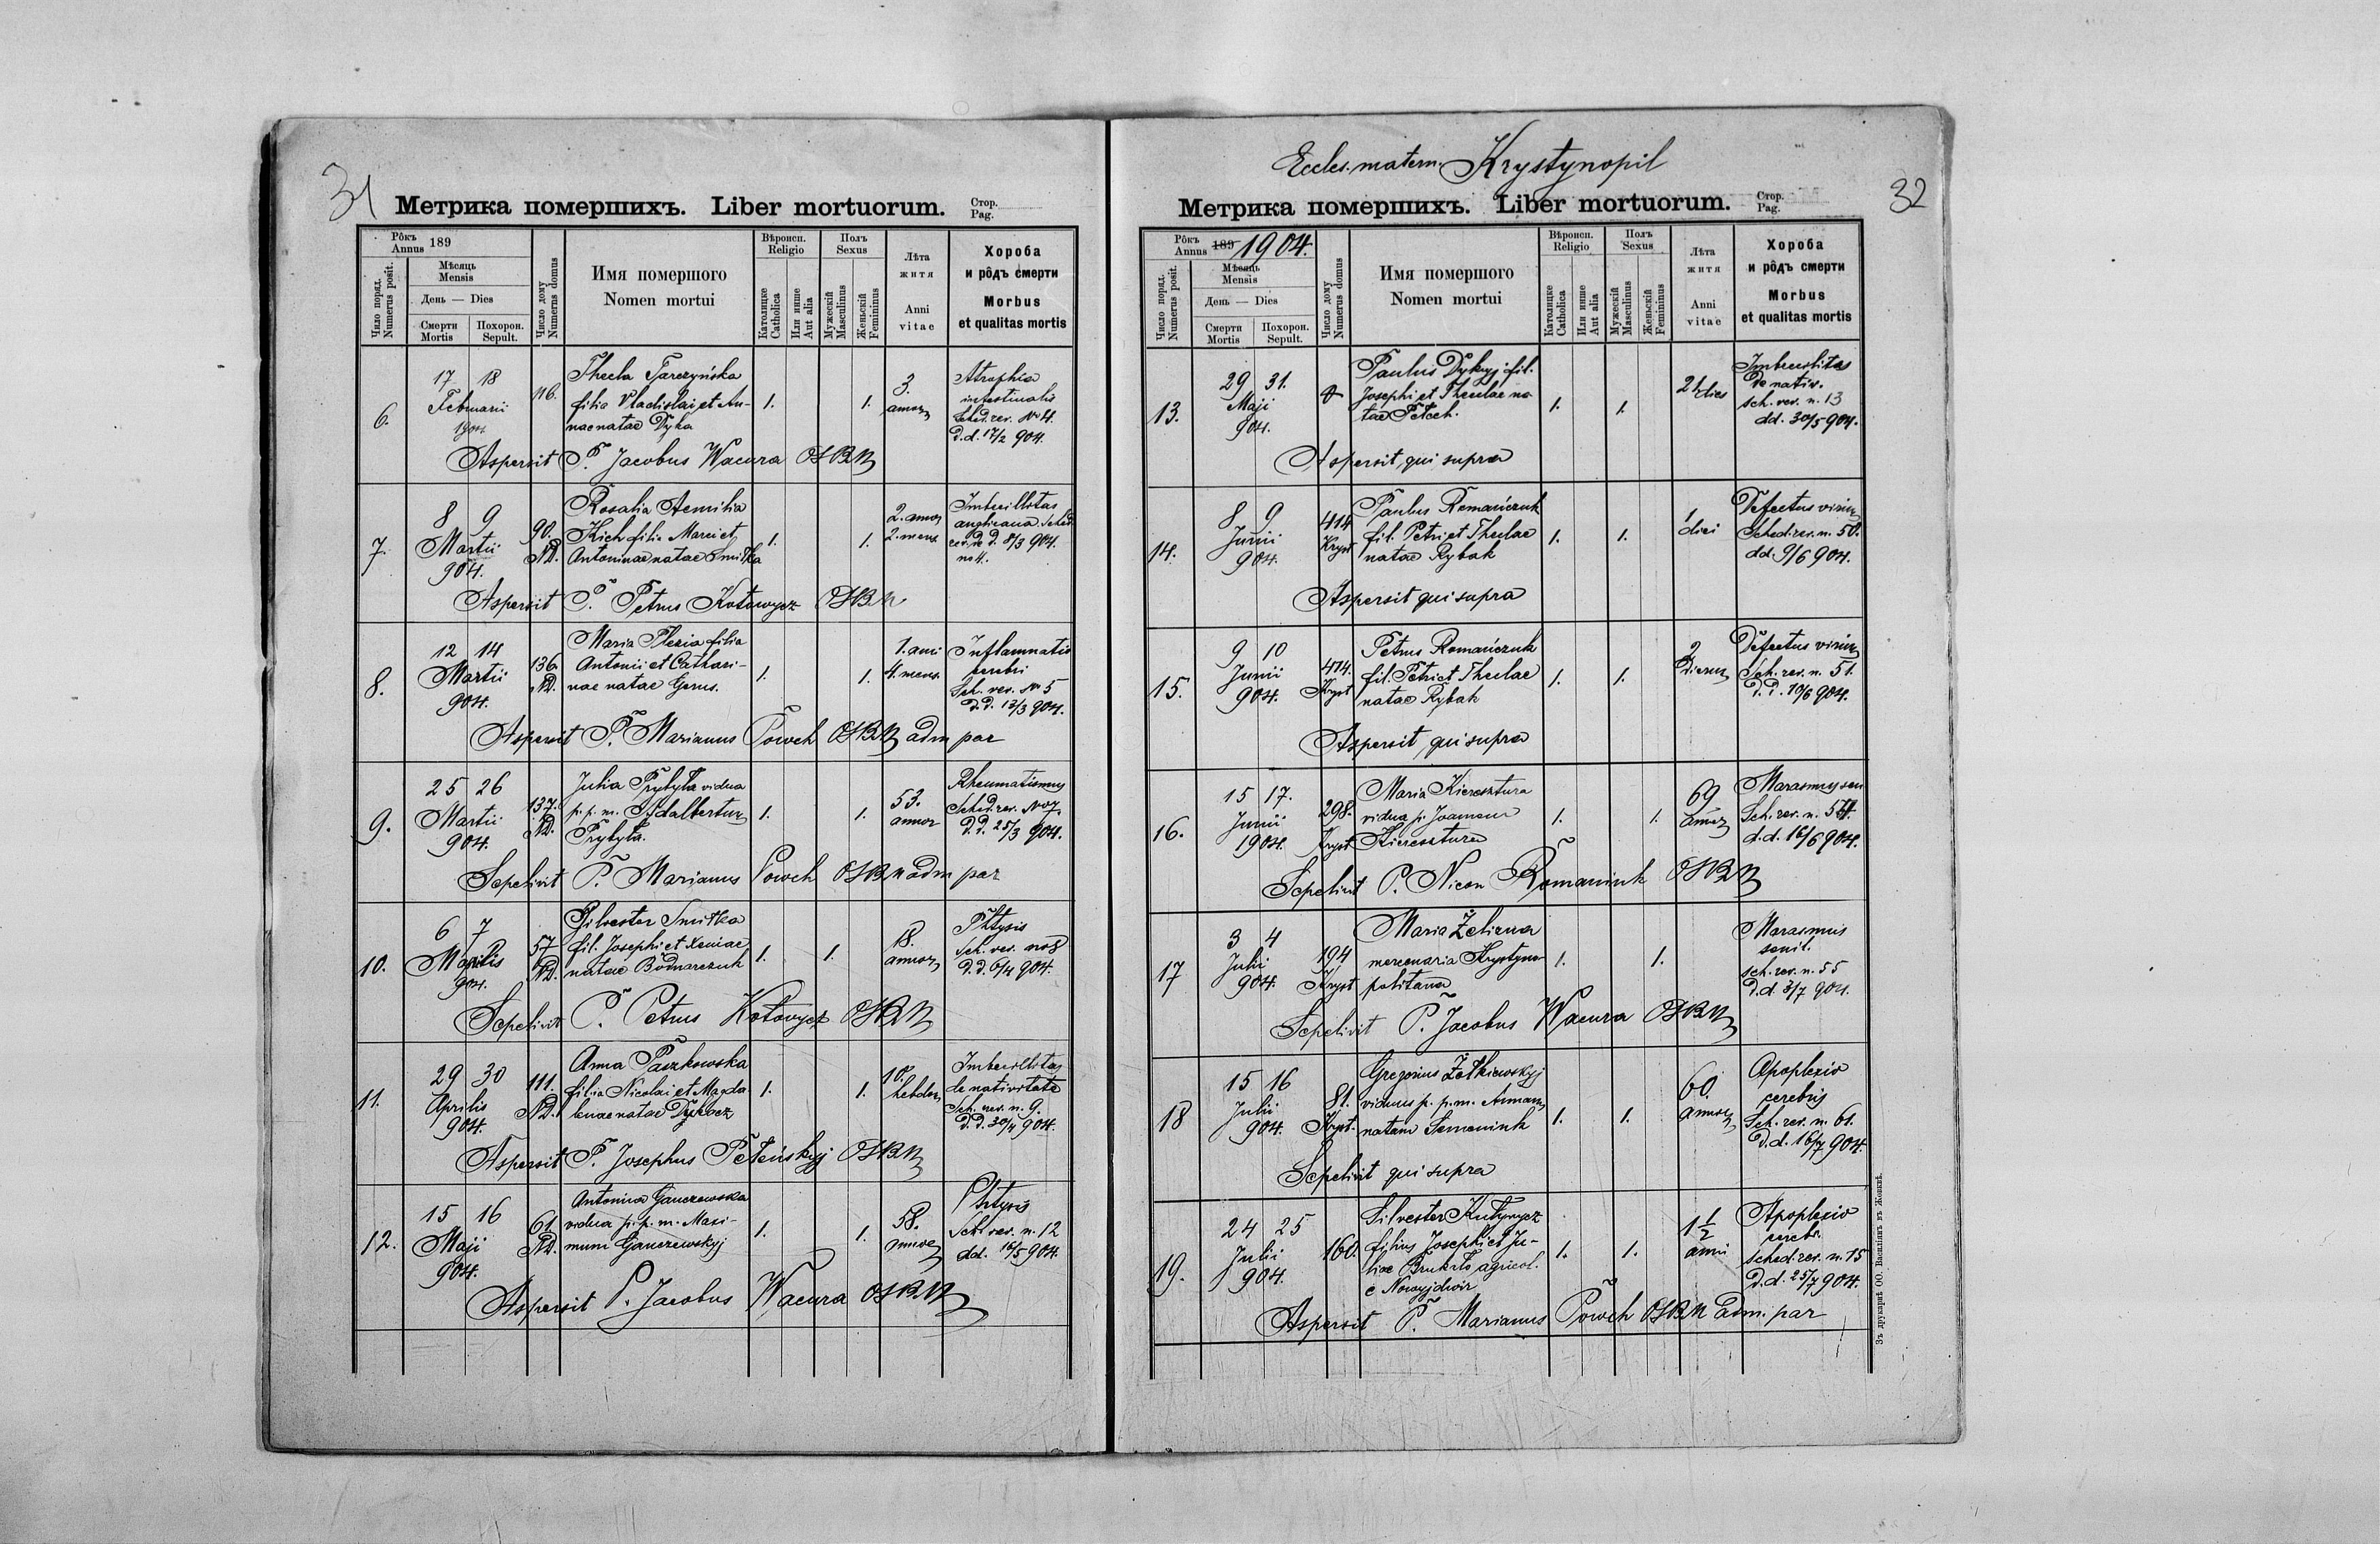 31
Метрика помершихъ. Liber mortuorum.
Стор.
Pag.
Рôкъ
Annus 189
Число поряд.
Numerus posit.
Мѣсяць
Mensis
День — Dies
Смерти
Mortis
Похорон.
Sepult.
Число дому
Numerus domus
Имя помершого
Nomen mortui
Вѣроисп.
Religio
Католицке
Catholica
Или инше
Aut alia
Полъ
Sexus
Мужескій
Masculinus
Женьскій
Feminius
Лѣта
житя
Anni
vitae
Хороба
и рôдъ смерти
Morbus
et qualitas mortis
6.
17 18
Februarii
1904
116.
Thecla Tarczyńska
filia Vladislai et An-
nae natae Dyka
1.
1.
3.
annor
Atrophia
intestinalis
Sched. rev. No 4.
D.d. 17/2 904.
Aspersit P. Jacobus Wacura OSBM
7.
8 9
Martii
904.
90.
ND.
Rosalia Aemilia
Kich filia Marci et
Antoninae natae Smitka
1.
1.
2. annor
2. mens
Imbecillitas
anglicana Sched.
rev. de d. 8/3 904.
no 4.
Aspersit P. Petrus Kotowycz OSBM
8.
12 14
Martii
904.
136.
ND.
Maria filia
Antonii et Cathari-
nae natae Gerus.
1.
1.
1. ani
4. mens.
Inflammatio
cerebri
Sch. rev. No 5
D.D. 13/3 904.
Aspersit P. Marianus Powch OSBM adm par
9.
25 26
Martii
904.
137.
ND.
Julia Prybyła vidua
p. p. m. Adalbertum
Prybyła.
1.
1.
53.
annor
Rheumatismus
Sched. rev. No 7
D.D. 25/3 904.
Sepelivit P. Marianus Powch OSBM adm par
10.
6 7
904.
57
ND.
Silvester Smitka
fil. Josephi et Xeniae
natae Bodnarczuk
1.
1.
18.
annor
Phtysis
Sch. rev. no 8
D.d. 6/4 904.
Sepelivit P. Petrus Kotowycz OSBM
11.
29 30
Aprilis
904.
111.
ND.
Anna Paszkowska
filia Nicolai et Magda
lenae natae
1.
1.
10.
hebdom
Imbecillitas
de nativitate
Sch. rev. n. 9.
D.D. 30/4 904.
Aspersit P. Josephus OSBM
12.
15 16
Maji
904.
61
ND.
Antonina Ganczewska
vidua p. p. m. Maxi-
mum Ganczewskyj
1.
1.
58.
annor
Phtysis
Sch rev. n. 12
dd. 16/5 904.
Aspersit P. Jacobus Wacura OSBM
Eccles. matern. Krystynopil
32
Метрика помершихъ. Liber mortuorum.
Стор.
Pag.
Рôкъ
Annus 189 1904.
Число поряд.
Numerus posit.
Мѣсяць
Mensis
День — Dies
Смерти
Mortis
Похорон.
Sepult.
Число дому
Numerus domus
Имя помершого
Nomen mortui
Вѣроисп.
Religio
Католицке
Catholica
Или инше
Aut alia
Полъ
Sexus
Мужескій
Masculinus
Женьскій
Feminius
Лѣта
житя
Anni
vitae
Хороба
и рôдъ смерти
Morbus
et qualitas mortis
13.
29 31.
Maji
904.
Paulus Dykyj fil.
Josephi et Theclae na-
tae Petech.
1.
1.
dies
Imbecilitas
de nativ.
sch. rev. n. 13
dd. 30/5 904.
Aspersit, qui supra
14.
8 9
Junii
904.
414
Kryst
Paulus Romańczuk
fil. Petri et Theclae
natae Rybak
1.
1.
1
diei
Defectus virium
Sched. rev. n. 50.
dd. 9/6 904.
Aspersit qui supra
15.
9 10
Junii
904.
414.
Kryst
Petrus Romańczuk
fil. Petri et Theclae
natae Rybak
1.
1.
2
dierum
Defectus virium
Sch. rev. n. 51.
D.D. 10/6 904.
Aspersit, qui supra
16.
15 17.
Junii
1904.
298.
Kryst
Maria Kieresztura
vidua p. Joannem
Kieresztura
1.
1.
69
annor
Marasmus sen
Sch. rev. n. 54.
d.d. 16/6 904.
Sepelivit P. Nicon Romaniuk OSBM
17
3 4
Julii
904.
194
Kryst
Maria Żelizna
mercenaria Krystyno
politana
1.
1.
Marasmus
senil.
sch. rev. n. 55
D.d. 3/7 904.
Sepelivit P. Jacobus Wacura OSBM
18
15 16
Julii
904.
81.
Kryst.
Gregorius Żołkiewskyj
viduus p. p. m. Annam
natam Semeniuk
1.
1.
60.
annor
Apoplexio
cerebri
Sch. rev. n. 61.
D.d. 16/7 904.
Sepelivit qui supra
19.
24 25
Julii
904.
160.
Silvester Kutynycz
filius Josephi et Ju-
liae agricol.
e Nowyjdwir
1.
1.
1 1/2
anni
Apoplexio
cerebr.
sched. rev. n. 15
D.d. 25/7 904.
Aspersit P. Marianus Powch OSBM adm. par
Зъ друкарнѣ ОО. Василіянъ въ Жовквѣ.